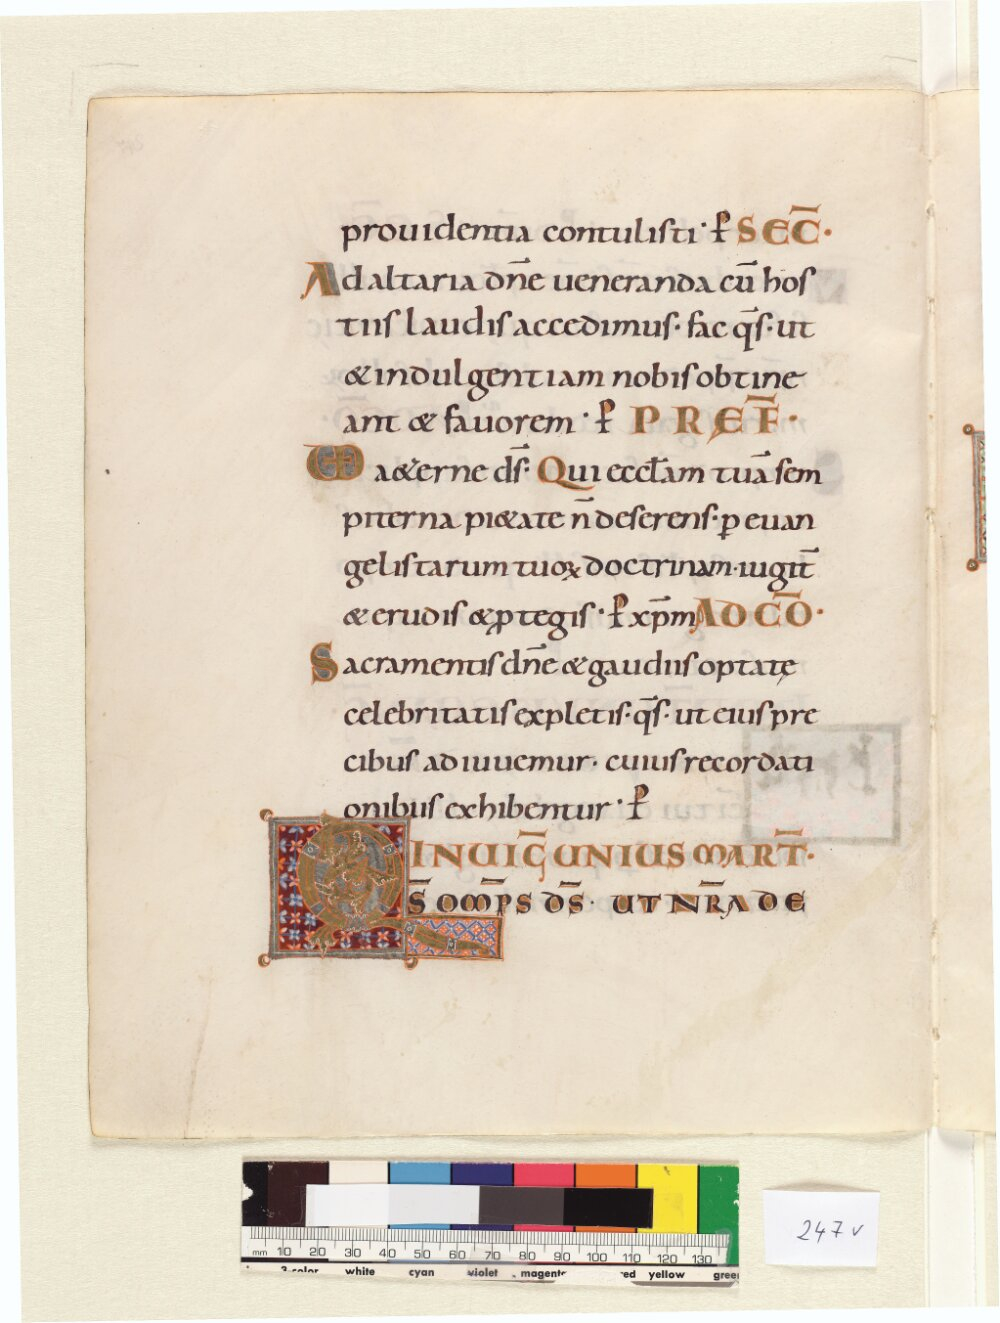 prouidentia contulisti· ꝑ SEC̄·
Ad altaria dn̄e ueneranda cū hos
tiis laudis accedimus· fac q̄s· ut
& indulgentiam nobis obtine
ant & fauorem· ꝑ PREF̄·
UD a&erne ds̄· Qui eccl̄am tuā sem
piterna pi&ate n̄ deserens· p euan
gelistarum tuoꝝ doctrinam· iugit̄
& erudis & ꝓtegis· ꝑ xp̄m AD CŌ·
Sacramentis dn̄e & gaudiis optatę
celebritatis expletis· q̄s· ut eius pre
cibus adiuuemur· cuius recordati
onibus exhibentur· ꝑ
IN UIḠ UNIUS MART̄·
Q S̄ OMP̄S DS̄· UT NR̄A DE
247v
mm 10 20 30 40 50 60 70 80 90 100 110 120 130
3-color white cyan violet magenta red yellow green